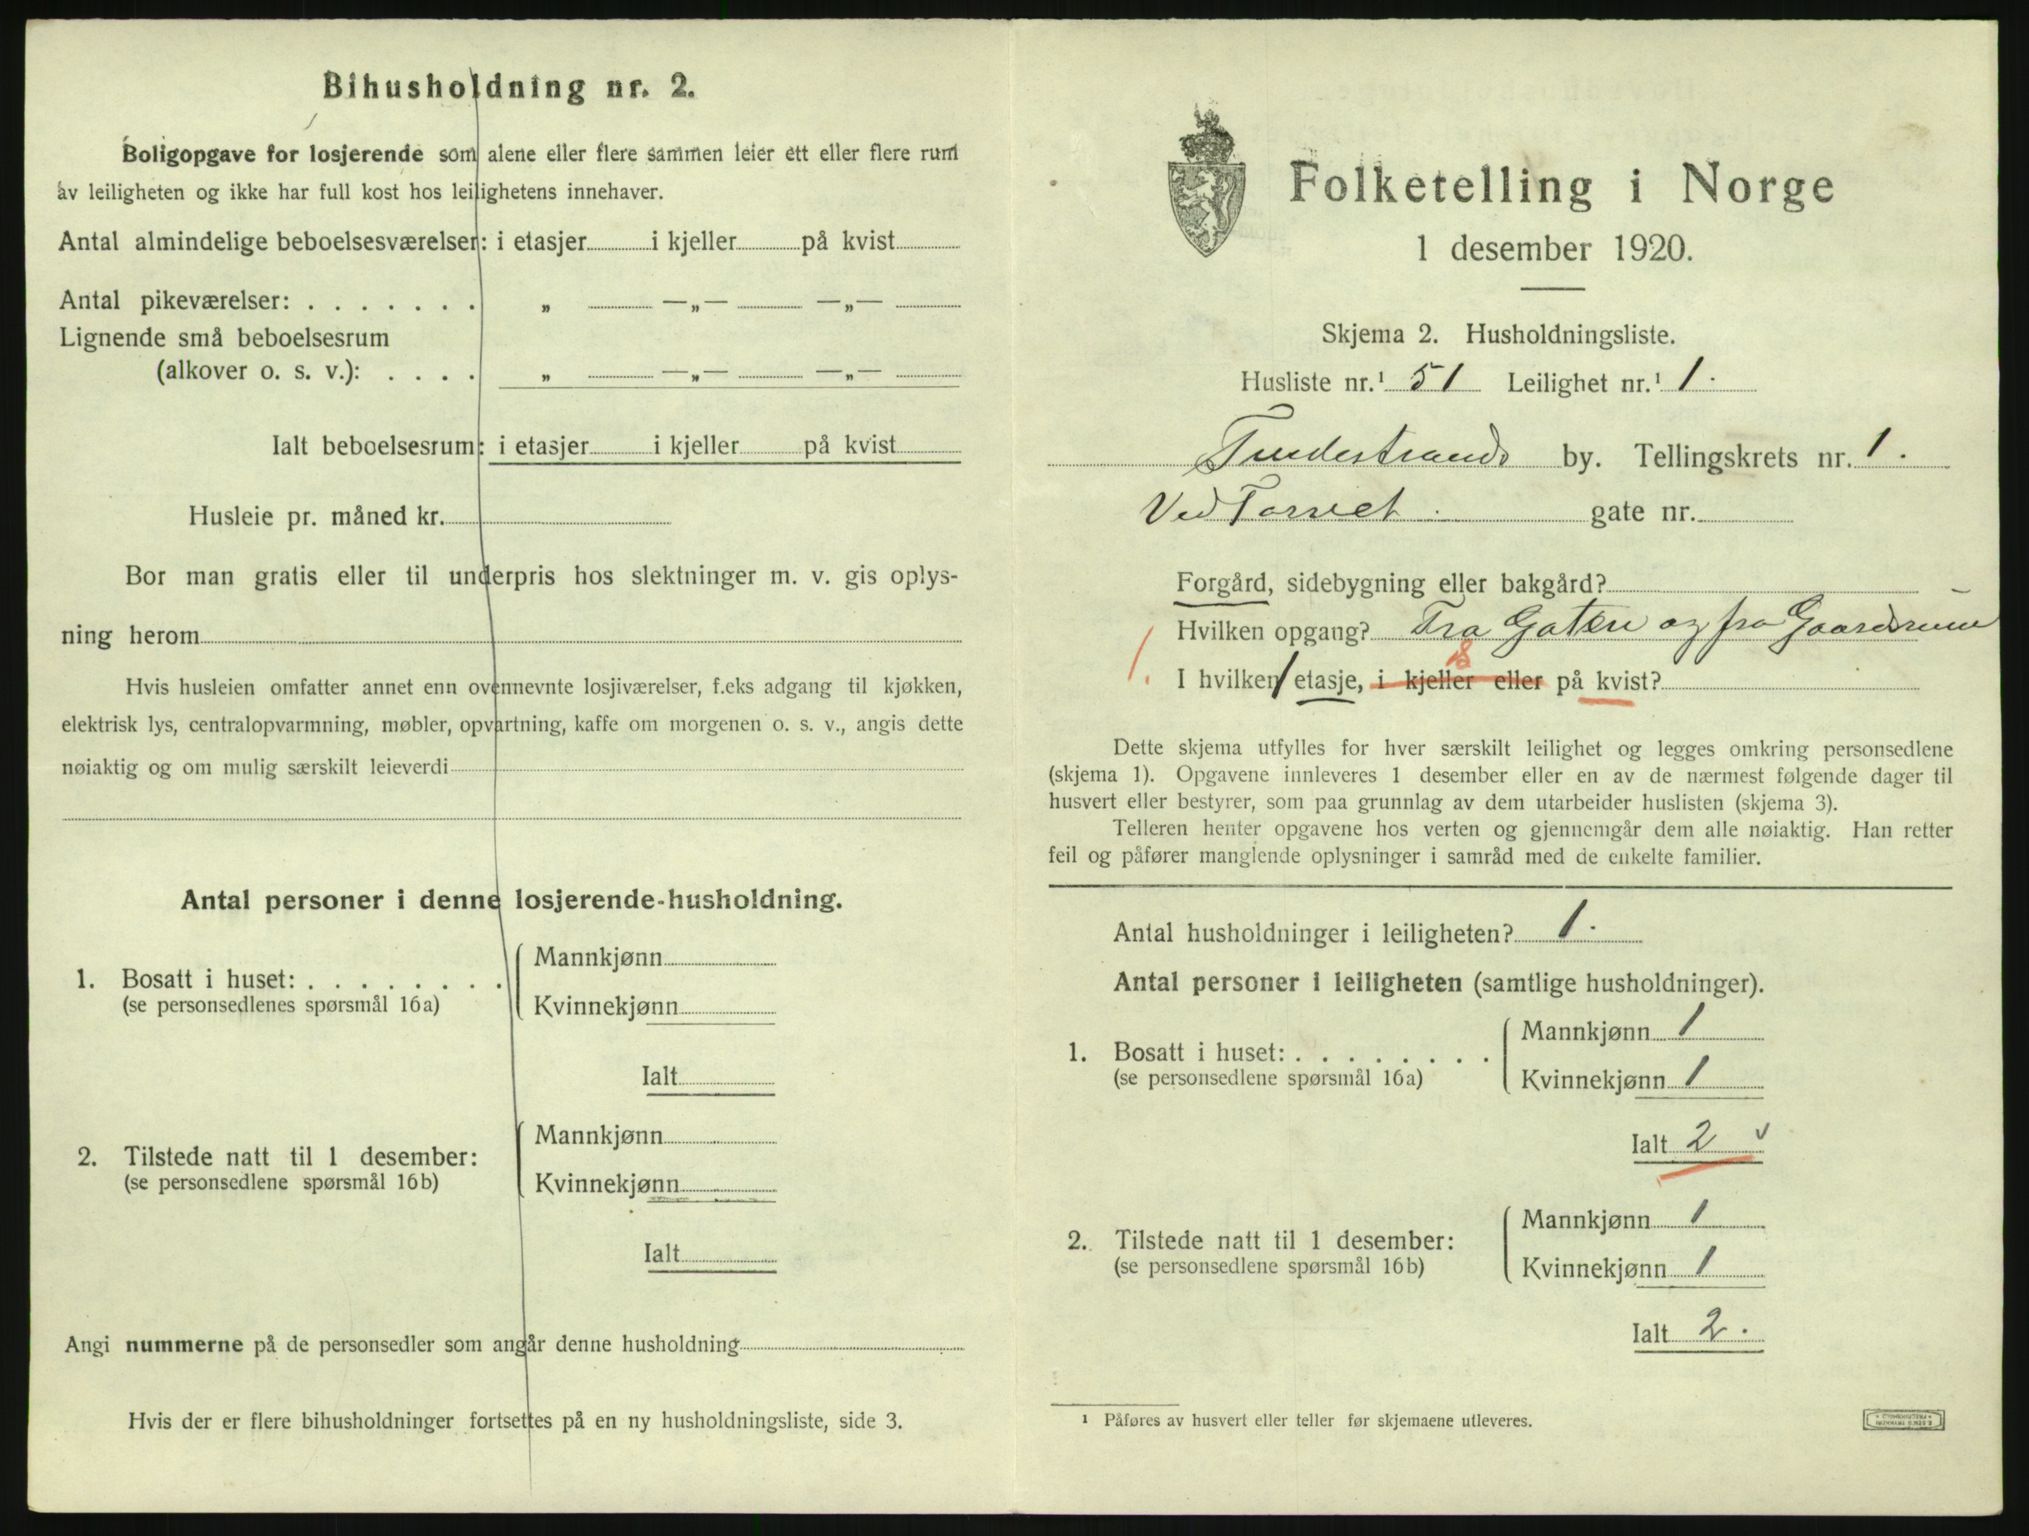 Bihusholdning nr. 2.
Boligopgave for losjerende som alene eller flere sammen leier ett eller flere rum
av leiligheten og ikke har full kost hos leilighetens innehaver.
Antal almindelige beboelsesværelser: i etasjer i kjeller på kvist
Antal pikeværelser: . . . . . . . „ —„— —„—
Lignende små beboelsesrum
(alkover o. s. v.): . . . . „ —„— —„—
Ialt beboelsesrum: i etasjer i kjeller på kvist
Husleie pr. måned kr.
Bor man gratis eller til underpris hos slektninger m. v. gis oplys-
ning herom
Hvis husleien omfatter annet enn ovennevnte losjiværelser, f.eks adgang til kjøkken,
elektrisk lys, centralopvarmning, møbler, opvartning, kaffe om morgenen o. s. v., angis dette
nøiaktig og om mulig særskilt leieverdi
Antal personer i denne losjerende-husholdning.
1. Bosatt i huset: . . . . . . . .
(se personsedlenes spørsmål 16a)
Mannkjønn
Kvinnekjønn
Ialt
2. Tilstede natt til 1 desember:
(se personsedlene spørsmål 16b)
Mannkjønn
Kvinnekjønn
Ialt
Angi nummerne på de personsedler som angår denne husholdning
Hvis der er flere bihusholdninger fortsettes på en ny husholdningsliste, side 3.
Folketelling i Norge
1 desember 1920.
Skjema 2. Husholdningsliste.
Husliste nr.¹ 51 Leilighet nr.¹ 1.
Tvedestrands by. Tellingskrets nr. 1.
Ved Torvet. gate nr.
Forgård, sidebygning eller bakgård?
Hvilken opgang? Fra Gaten og fra Gaardsrum
1. I hvilken 1 etasje, i kjeller eller på kvist?
Dette skjema utfylles for hver særskilt leilighet og legges omkring personsedlene
(skjema 1). Opgavene innleveres 1 desember eller en av de nærmest følgende dager til
husvert eller bestyrer, som paa grunnlag av dem utarbeider huslisten (skjema 3).
Telleren henter opgavene hos verten og gjennemgår dem alle nøiaktig. Han retter
feil og påfører manglende oplysninger i samråd med de enkelte familier.
Antal husholdninger i leiligheten? 1.
Antal personer i leiligheten (samtlige husholdninger).
1. Bosatt i huset: . . . . . . . .
(se personsedlene spørsmål 16a)
Mannkjønn 1
Kvinnekjønn 1
Ialt 2 v
2. Tilstede natt til 1 desember:
(se personsedlene spørsmål 16b)
Mannkjønn 1
Kvinnekjønn 1
Ialt 2.
¹ Påføres av husvert eller teller før skjemaene utleveres.